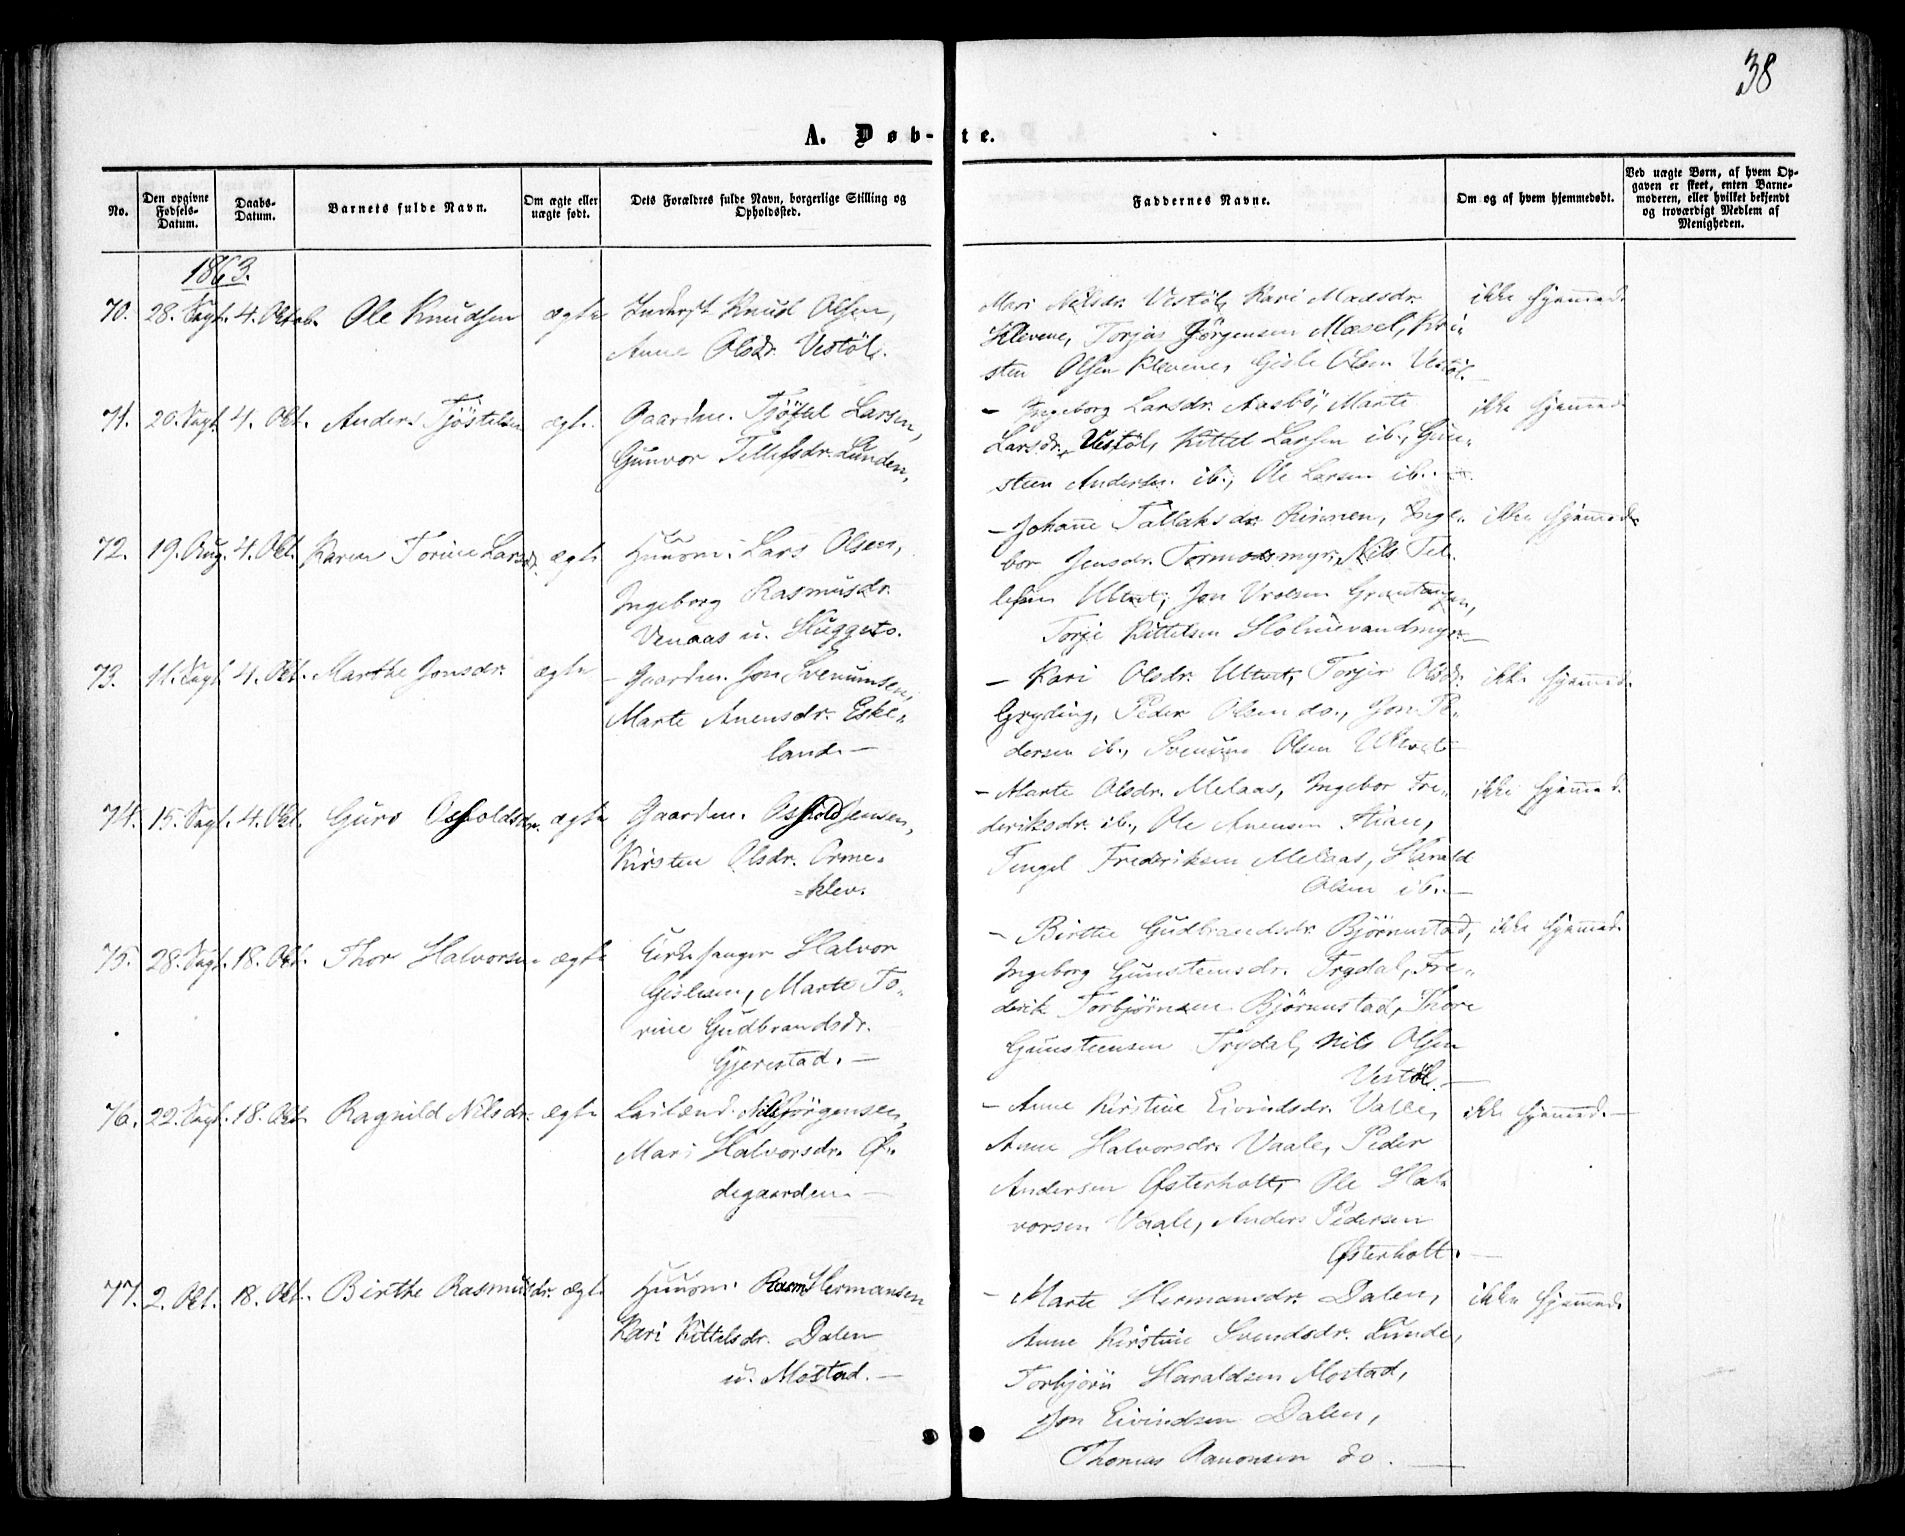 38
A. Døb-te.
No.
Den opgivne Fødsels-Datum.
Daabs-Datum.
Barnets fulde Navn.
Om ægte eller uægte født.
Dets Forældres fulde Navn, borgerlige Stilling og Opholdssted.
Faddernes Navne.
Om og af hvem hjemmedøbt.
Ved uægte Børn, af hvem Opgaven er skeet, enten Barnemoderen, eller hvilket bekjendt og troværdigt Medlem af Menigheden.
1863.
70. 28. Sept. 4. Octob. Ole Knudsen ægte
Inderst Knud Olsen,
Anne Olsdr. Vestøl.
Mari Nilsdr. Vestøl, Kari Madsdr.
Klevene, Torjus Jörgensen Mæsel, Kri-
sten Olsen Klevene, Gisle Olsen Vestöl.
ikke hjemmed.
71. 20. Sept. 4. Okt. Anders Tjöstelsen ægte
Gaardm. Tjöstel Larsen,
Gunvor Tellefsdr. Lunden,
- Ingeborg Larsdr. Aasbö, Marte
Larsdr. Vestöl, Kittel Larsen ib., Gun-
steen Andersen ib., Ole Larsen ib.
ikke hjemmed.
72. 19. Aug. 4. Okt. Karen Torine Larsdr. ægte
Huusm. Lars Olsen,
Ingeborg Rasmusdr.
Venaas u. Skuggeto.
- Johane Tallaksdr. Rinnen, Inge-
bor Jensdr. Tormodsmyr, Nils Tel-
lefsen Ultvet, Jon Vrolsen Grautangen,
Torje Kittelsen Holmevandmyr. -
ikke hjemmed.
73. 11. Sept. 4. Okt. Marthe Jonsdr. ægte
- Gaardm. Jon Svenumsen,
Marte Anensdr. Eske-
land. -
- Kari Olsdr. Ultvet, Torjer Olsdr.
Gryding, Peder Olsen do., Jon Pe-
dersen ib., Svenum Olsen Ultveit
ikke hjemmed.
74. 15. Sept. 4. Okt. Guro Osfoldsdr. ægte
Gaardm. Osfold Jensen,
Kirsten Olsdr. Orme-
=klev.
- Marte Olsdr. Melaas, Ingebor Fre-
deriksdr. ib., Ole Anensen Stian,
Tengel Frederiksen Melaas, Harald
Olsen ib. -
ikke hjemmed.
75. 28. Sept. 18. Okt. Thor Halvorsen ægte
Kirkesanger Halvor
Gislesen, Marte To-
rine Gudbrandsdr.
Gjerestad. -
- Birthe Gudbrandsdr. Björnustad,
Ingeborg Gunsteensdr. Trydal, Fre-
derik Torbjörnsen Björnustad, Thore
Gunsteensen Trydal, Nils Olsen
Vestöl. -
ikke hjemmed.
76. 22. Sept. 18. Okt. Ragnild Nilsdr. ægte
Leilænd. Nils Jörgensen,
Mari Halvorsdr. Ø-
degaarden. -
- Anne Kirstine Eivindsdr. Valle,
Anne Halvorsdr. Vaale, Peder
Andersen Østerholt, Ole Hal-
vorsen Vaale, Anders Pedersen
Østerholt. -
ikke hjemmed. -
77. 2. Okt. 18. Okt. Birthe Rasmusdr. ægte
Huusm. Rasm Hermansen
Kari Kittelsdr. Dalen
u. Mostad. -
- Marte Hermansdr. Dalen,
Anne Kirstine Svendsdr. Lunde,
Torbjörn Haraldsen Mostad,
Jon Eivindsen Dalen,
Thomas Aanonsen do. -
ikke hjemmed.